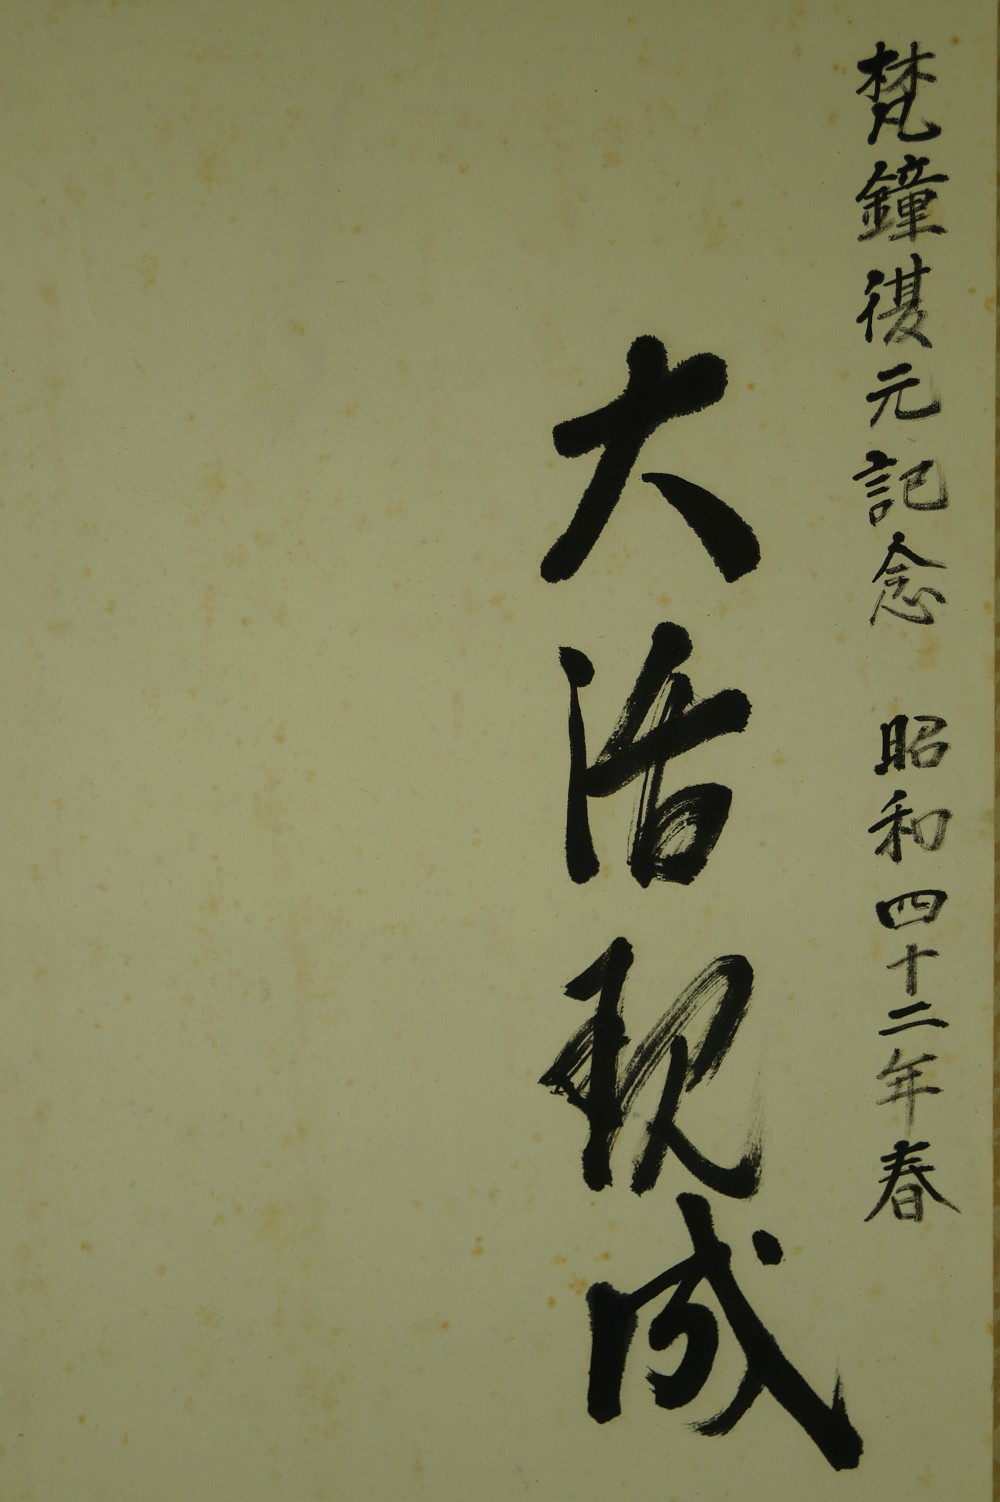 梵鐘復元記念 昭和四十二年春
大活現成